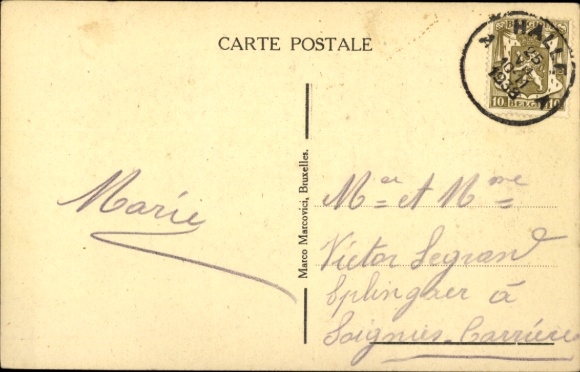 CARTE POSTALE
HALLE
1938
BELGIE
10 BELG 10
Marco Marcovici, Bruxelles.
Marie
Mr et Mme
Victor Legrand
Eplingaer à
Soignies-Carrière